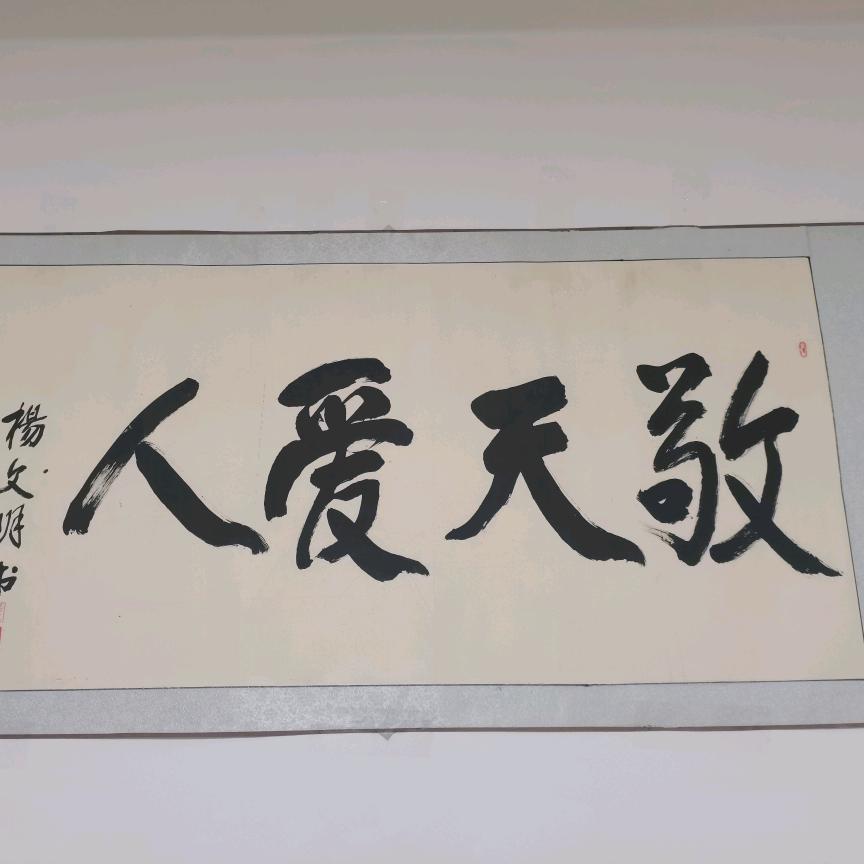 敬天爱人
楊文明书